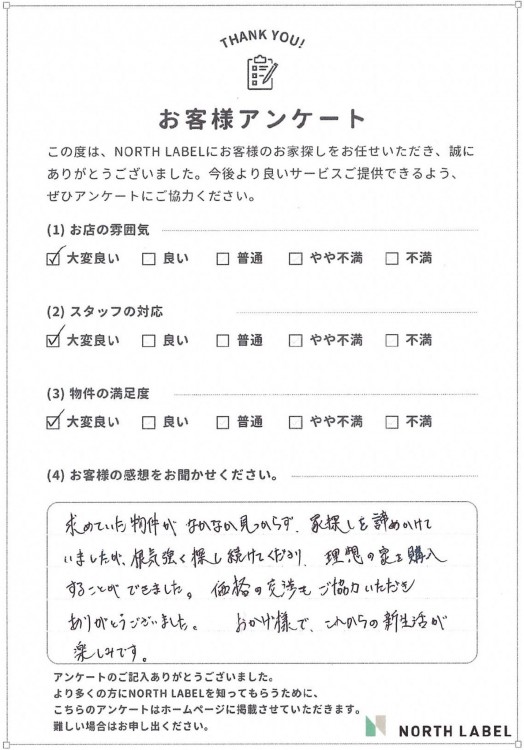 THANK YOU!
お客様アンケート
この度は、NORTH LABELにお客様のお家探しをお任せいただき、誠に
ありがとうございました。今後より良いサービスご提供できるよう、
ぜひアンケートにご協力ください。
(1) お店の雰囲気
大変良い 良い 普通 やや不満 不満
(2) スタッフの対応
大変良い 良い 普通 やや不満 不満
(3) 物件の満足度
大変良い 良い 普通 やや不満 不満
(4) お客様の感想をお聞かせください。
求めていた物件がなかなか見つからず、家探しを諦めかけて
いましたが、根気強く探し続けてくださり、理想の家を購入
することができました。価格の交渉もご協力いただき
ありがとうございました。 おかげ様で、これからの新生活が
楽しみです。
アンケートのご記入ありがとうございました。
より多くの方にNORTH LABELを知ってもらうために、
こちらのアンケートはホームページに掲載させていただきます。
難しい場合はお申し出ください。
NORTH LABEL